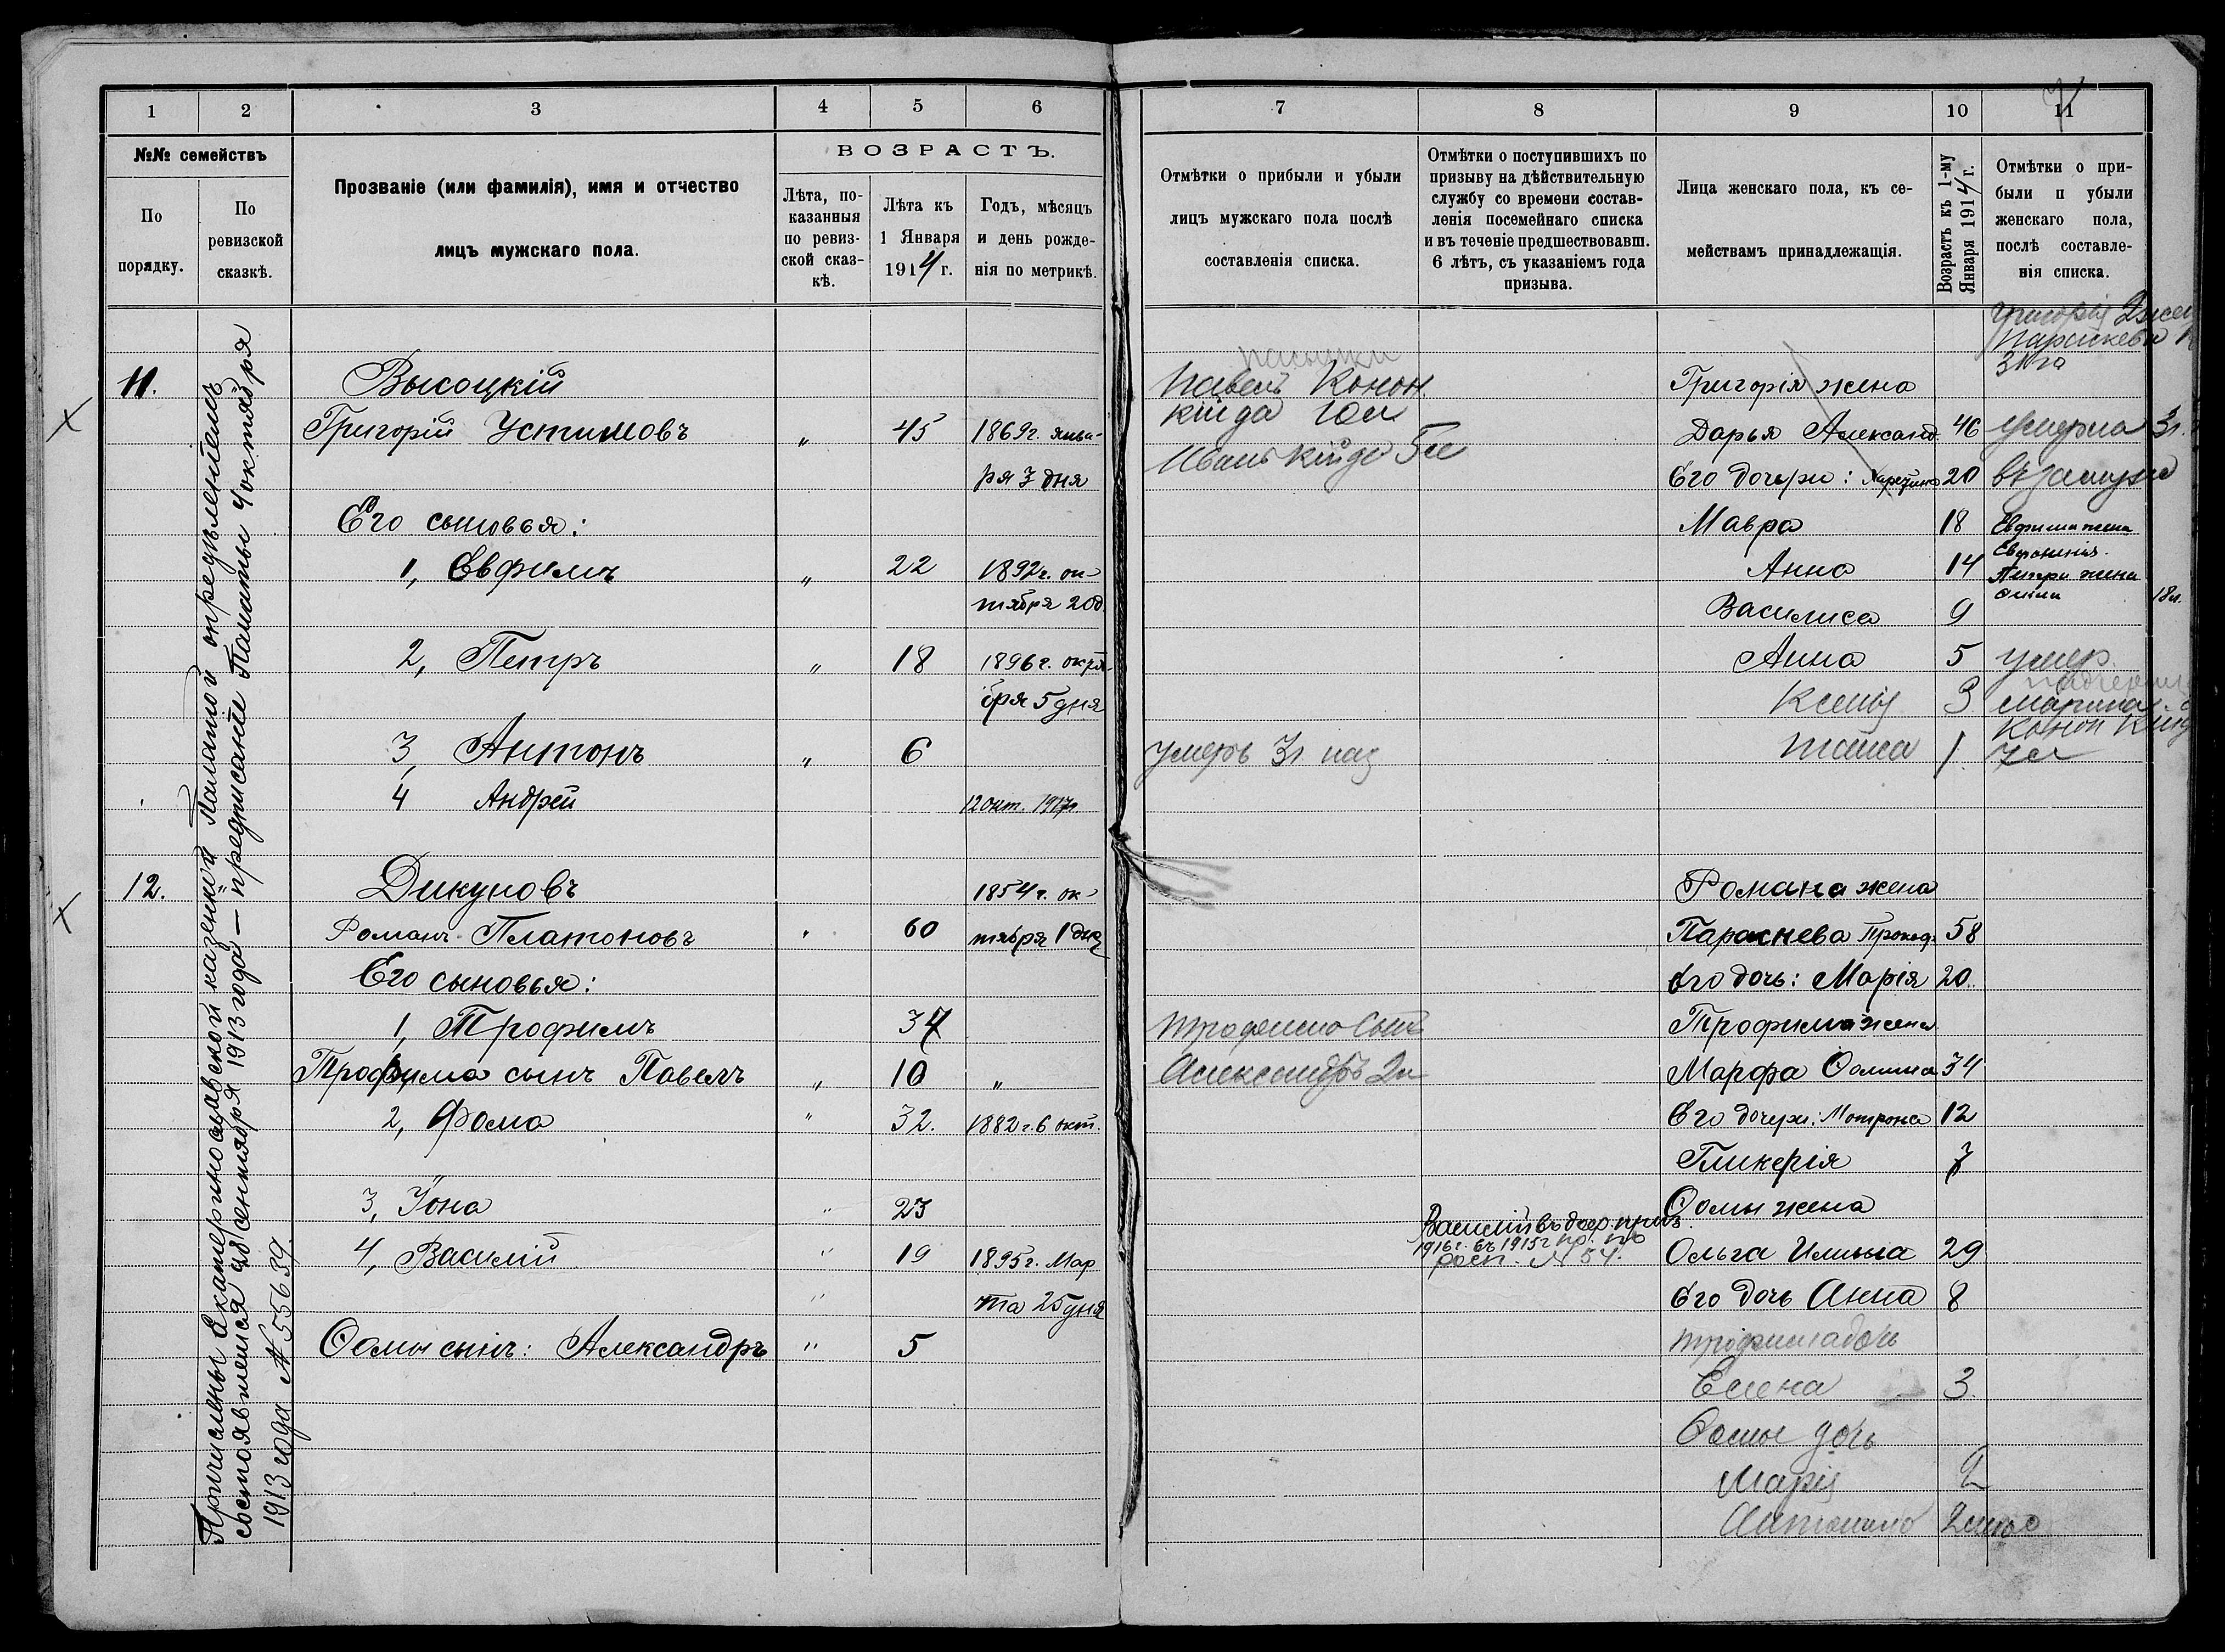 1
2
3
4
5
6
№№ семействъ
По порядку.
По ревизской сказкѣ.
Прозваніе (или фамилія), имя и отчество
лицъ мужскаго пола.
ВОЗРАСТЪ.
Лѣта, по-
казанныя
по ревиз-
ской сказ-
кѣ.
Лѣта къ
1 Января
1914 г.
Годъ, мѣсяцъ
и день рожде-
нія по метрикѣ.
Причислены Екатеринославской казенной Палатой опредѣленіемъ
состоявшемся сентября 1913 года — предписаніе Палаты 4 октября
1913 года № 55639.
11.
Высоцкій
Григорій Устимовъ " 45 1869 г. янва-
ря 3 дня
Его сыновья:
1, Евфимъ " 22 1892 г. ок-
тября 20 д
2, Петръ " 18 1896 г. октя-
бря 5 дня
3, Антонъ " 6
4 Андрей 12 окт. 1917г.
12.
Дикуновъ 1854 г. ок-
Романъ Платоновъ " 60 тября 1 дня
Его сыновья:
1, Трофимъ 37
Трофима сынъ Павелъ " 10 "
2, Фома " 32. 1882 г. 6 окт.
3, Іона " 23
4, Василій " 19 1895 г. Мар
" та 25 дня
Ѳомы сынъ: Александръ " 5
7
8
9
10
11
Отмѣтки о прибыли и убыли
лицъ мужскаго пола послѣ
составленія списка.
Отмѣтки о поступившихъ по
призыву на дѣйствительную
службу со времени состав-
ленія посемейнаго списка
и въ теченіе предшествовавш.
6 лѣтъ, съ указаніемъ года
призыва.
Лица женскаго пола, къ се-
мействамъ принадлежащія.
Возрастъ къ 1-му
Января 1914 г.
Отмѣтки о при-
были п убыли
женскаго пола,
послѣ составле-
нія списка.
Григорія
Параскева
пасынки
Павелъ Конон.
Григорія жена
10 л
Дарья Александ. 46 Умерла 3 г.
Иванъ 5 л
Его дочери: 20 въ замуже
Мавра 18 Евфима жена
Евфросинія.
Анна 14 Петра жена
18 л.
Василиса 9
Анна 5 умер.
Ксенія 3 падчерица
Марина
Конон
умеръ 3 г. наз 1 7 л
Романа жена
Параскева Прокоф. 58
Его дочь: Марія 20.
Трофима сынъ Трофима жена
Александръ 2 л Марфа 34
Его дочери: Мотрона 12
Гликерія 7
Ѳомы жена
Василій въ доср. приз.
1916 г. въ 1915 г пр. по
росп. № 54.
Ольга Ильина 29
Его дочь Анна 8
Трофима дочь
Елена 3.
Ѳомы дочь
Марія 2
Антонина